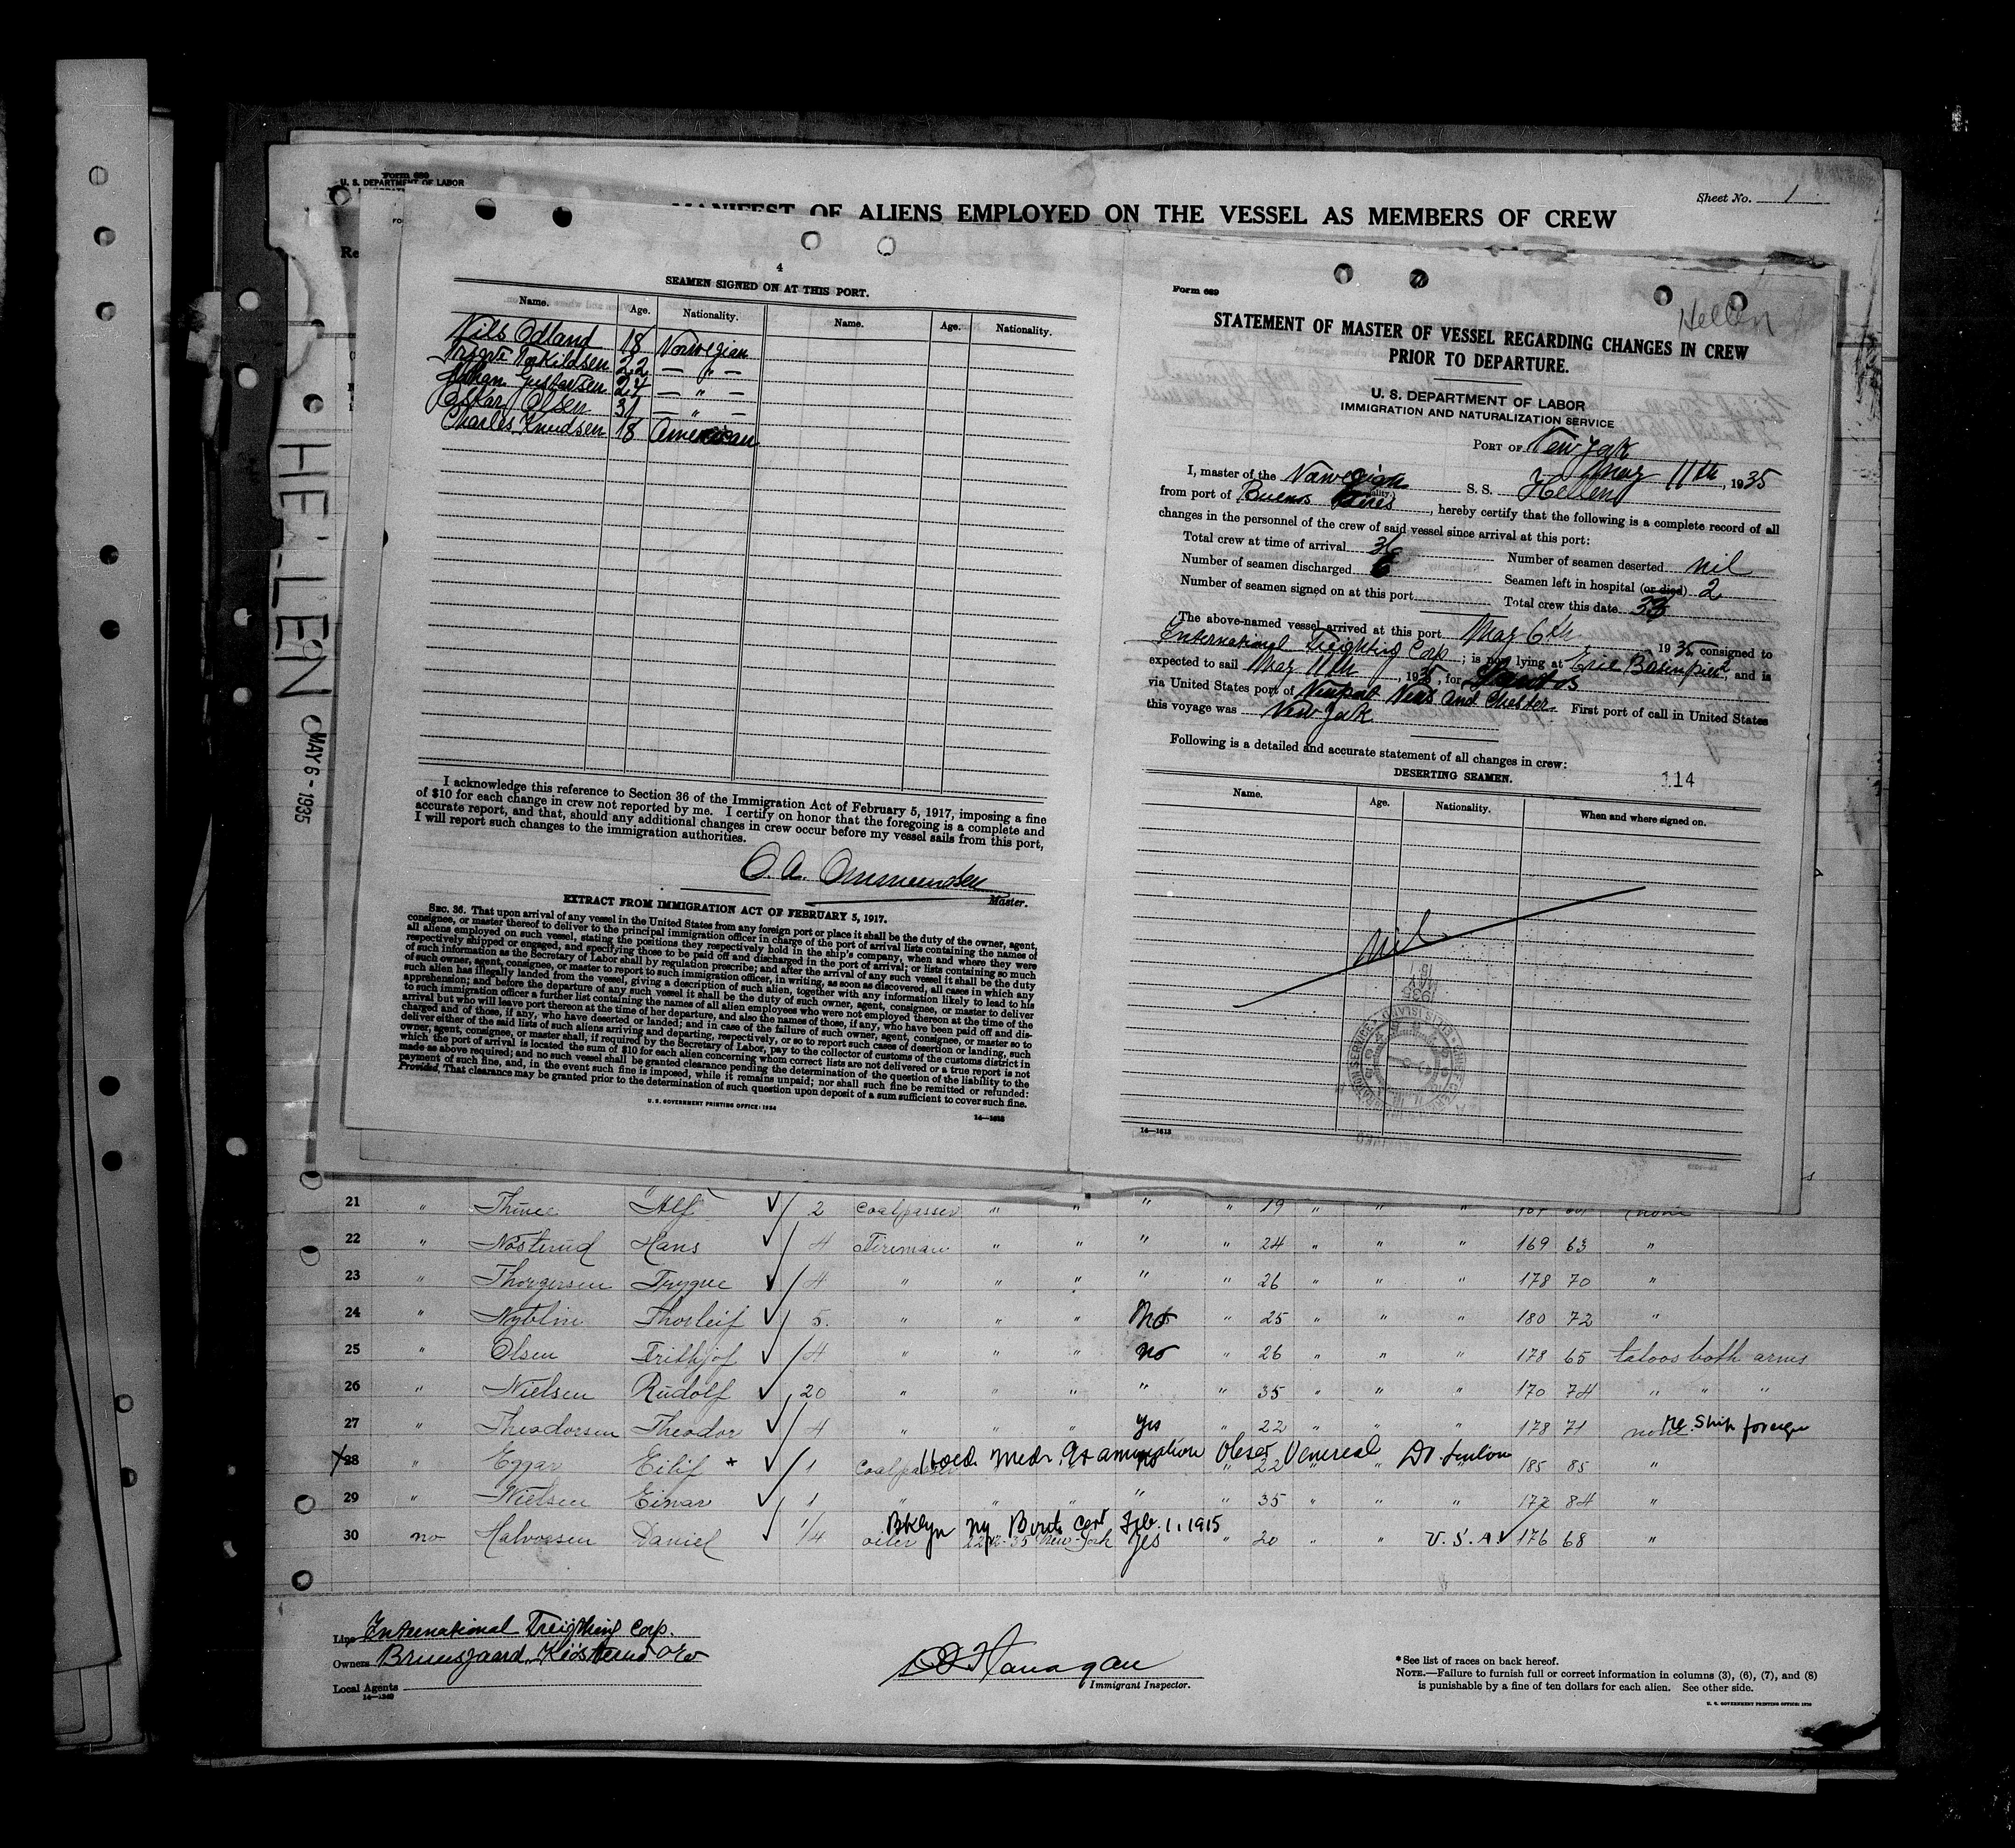 Form 689
U. S. DEPARTMENT OF LABOR
Sheet No. 1
MANIFEST OF ALIENS EMPLOYED ON THE VESSEL AS MEMBERS OF CREW
HELLEN
MAY 6 - 1935
4
SEAMEN SIGNED ON AT THIS PORT.
Name. Age. Nationality. Name. Age. Nationality.
Nils Odland 18 Norwegian
Trygve Torkildsen 22 — " —
Håkan Gustavsen 24 — " —
Oskar Olsen 31 — " —
Charles Knudsen 18 American
I acknowledge this reference to Section 36 of the Immigration Act of February 5, 1917, imposing a fine
of $10 for each change in crew not reported by me. I certify on honor that the foregoing is a complete and
accurate report, and that, should any additional changes in crew occur before my vessel sails from this port,
I will report such changes to the immigration authorities.
O. A. Ommundsen
Master.
EXTRACT FROM IMMIGRATION ACT OF FEBRUARY 5, 1917.
SEC. 36. That upon arrival of any vessel in the United States from any foreign port or place it shall be the duty of the owner, agent,
consignee, or master thereof to deliver to the principal immigration officer in charge of the port of arrival lists containing the names of
all aliens employed on such vessel, stating the positions they respectively hold in the ship's company, when and where they were
respectively shipped or engaged, and specifying those to be paid off and discharged in the port of arrival; or lists containing so much
of such information as the Secretary of Labor shall by regulation prescribe; and after the arrival of any such vessel it shall be the duty
of such owner, agent, consignee, or master to report to such immigration officer, in writing, as soon as discovered, all cases in which any
such alien has illegally landed from the vessel, giving a description of such alien, together with any information likely to lead to his
apprehension; and before the departure of any such vessel it shall be the duty of such owner, agent, consignee, or master to deliver
to such immigration officer a further list containing the names of all alien employees who were not employed thereon at the time of the
arrival but who will leave port thereon at the time of her departure, and also the names of those, if any, who have been paid off and dis-
charged and of those, if any, who have deserted or landed; and in case of the failure of such owner, agent, consignee, or master so to
deliver either of the said lists of such aliens arriving and departing, respectively, or so to report such cases of desertion or landing, such
owner, agent, consignee, or master shall, if required by the Secretary of Labor, pay to the collector of customs of the customs district in
which the port of arrival is located the sum of $10 for each alien concerning whom correct lists are not delivered or a true report is not
made as above required; and no such vessel shall be granted clearance pending the determination of the question of the liability to the
payment of such fine, and, in the event such fine is imposed, while it remains unpaid; nor shall such fine be remitted or refunded:
Provided, That clearance may be granted prior to the determination of such question upon deposit of a sum sufficient to cover such fine.
U. S. GOVERNMENT PRINTING OFFICE: 1934
14—1613
Form 689
Hellen
STATEMENT OF MASTER OF VESSEL REGARDING CHANGES IN CREW
PRIOR TO DEPARTURE.
U. S. DEPARTMENT OF LABOR
IMMIGRATION AND NATURALIZATION SERVICE
PORT OF New York
May 11th, 1935
I, master of the Norwegian S. S. Hellen
from port of Buenos Aires, hereby certify that the following is a complete record of all
changes in the personnel of the crew of said vessel since arrival at this port:
Total crew at time of arrival 36 Number of seamen deserted nil
Number of seamen discharged 6 Seamen left in hospital (or died) 2
Number of seamen signed on at this port Total crew this date 33
The above-named vessel arrived at this port May 6th 1935 consigned to
International Freighting Corp; is now lying at Erie Basin pier 2, and is
expected to sail May 11th, 1935, for Santos
via United States port of Newport News and Chester. First port of call in United States
this voyage was New York
Following is a detailed and accurate statement of all changes in crew:
DESERTING SEAMEN. 114
Name. Age. Nationality. When and where signed on.
Nil
14—1613
21 " Alf 2 Coalpasser " " " " 19 " " "
22 " Nøstrud Hans 4 Fireman " " " " 24 " " " 169 63 "
23 " Thorgersen Trygve 4 " " " " " 26 " " " 178 70 "
24 " Nyblin Thorleif 5. " " " no " 25 " " " 180 72 "
25 " Olsen Frithjof 4 " " " no " 26 " " " 178 65 tatoos both arms
26 " Nielsen Rudolf 20 " " " " " 35 " " " 170 74 " " "
27 " Theodorsen Theodor 4 " " " yes " 22 " " " 178 71 none Re Ship foreign
28 " Eggar Eilif * 1 Coalpasser Hosp. Medr. Examination Obser Venereal Dr 22 " 185 85
29 " Nielsen Einar 1 " " " " " 35 " " " 172 84 "
Bklyn ny Birth Cert Feb. 1, 1915
30 no Halvorsen Daniel 1/4 oiler 22/2-35 New-York Yes " 20 " " U.S.A 176 68 "
Line International Freighting Corp.
Owners Bruusgaard, Kiøsterud
Local Agents
14—1240
Hanagan
Immigrant Inspector.
* See list of races on back hereof.
NOTE.—Failure to furnish full or correct information in columns (3), (6), (7), and (8)
is punishable by a fine of ten dollars for each alien. See other side.
U. S. GOVERNMENT PRINTING OFFICE: 1930